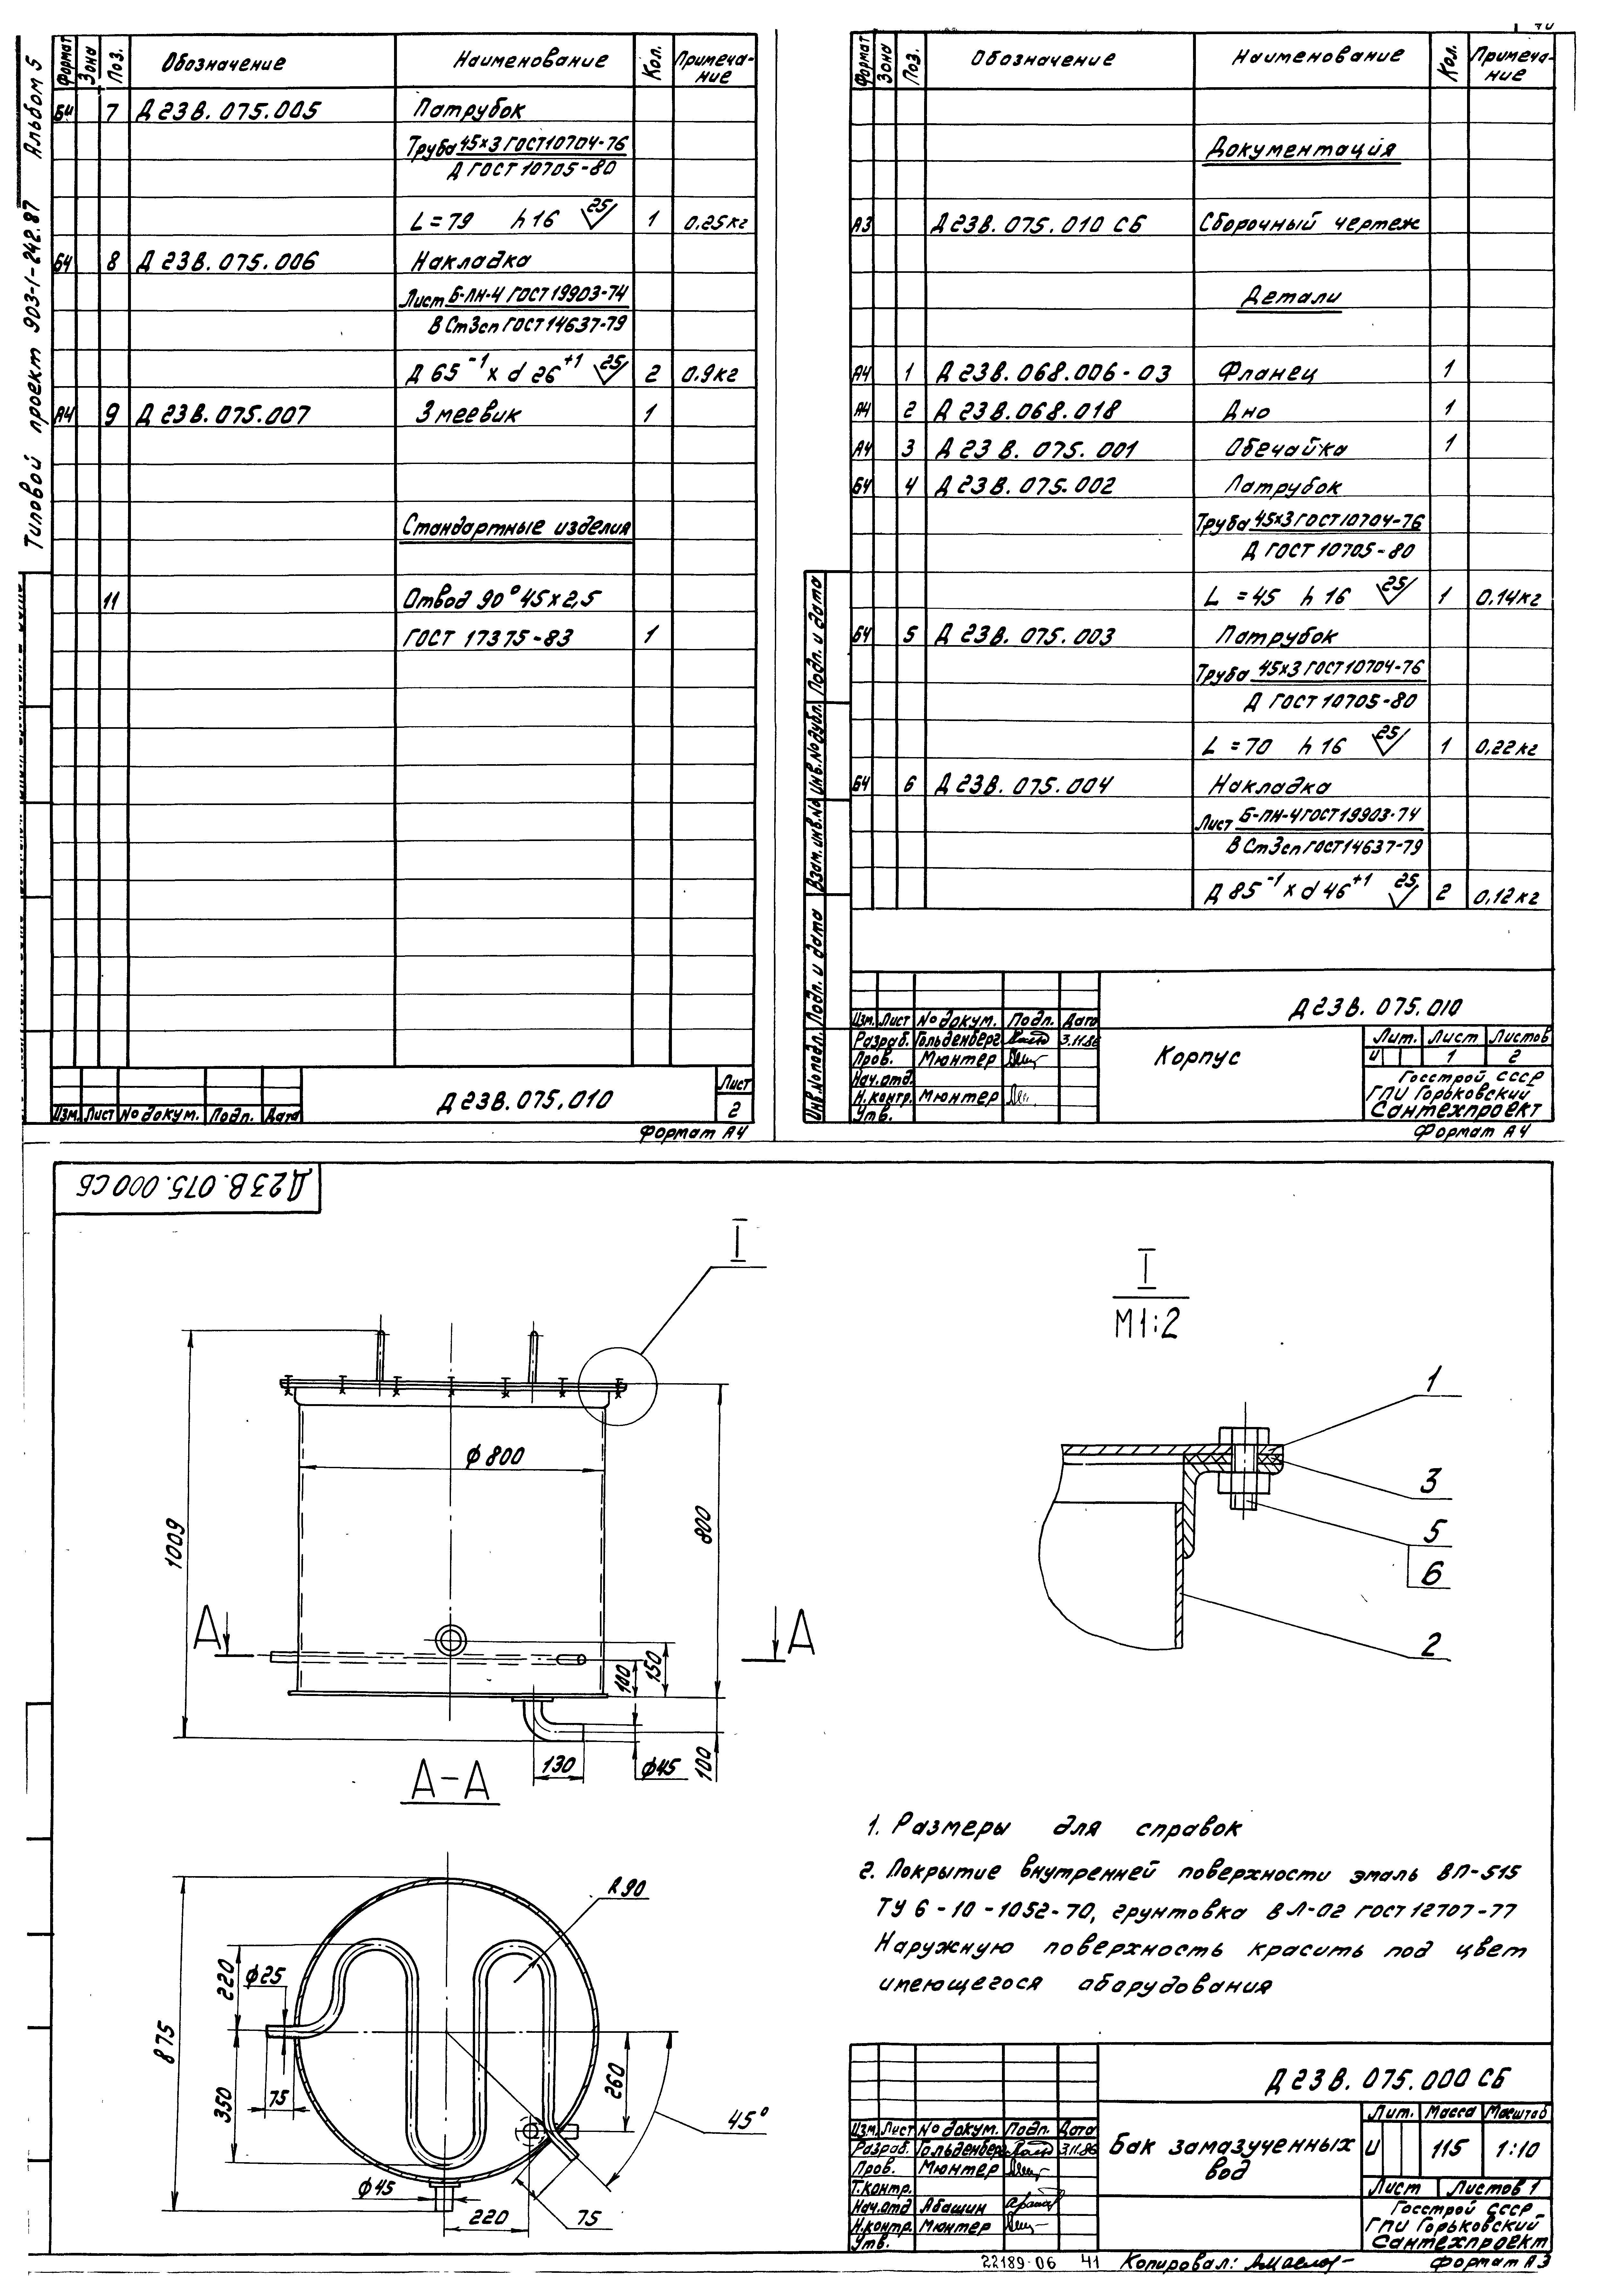 Типовой проект 903-1-242.87 Альбом 5
Формат Зона Поз. Обозначение Наименование Кол. Примеча-
ние
БЧ 7 Д23В.075.005 Патрубок
Труба 45х3 ГОСТ 10704-76
Д ГОСТ 10705-80
L=79 h16 25 1 0,25кг
БЧ 8 Д23В.075.006 Накладка
Лист Б-ПН-4 ГОСТ 19903-74
ВСт3сп ГОСТ 14637-79
Д 65 -1 х d 26 +1 25 2 0.9кг
А4 9 Д23В.075.007 Змеевик 1
Стандартные изделия
11 Отвод 90° 45х2,5
ГОСТ 17375-83 1
Изм. Лист № докум. Подп. Дата
Д23В.075.010
Лист
2
Формат А4
Формат Зона Поз. Обозначение Наименование Кол. Примеча-
ние
Документация
А3 Д23В.075.010 СБ Сборочный чертеж
Детали
А4 1 Д23В.068.006-03 Фланец 1
А4 2 Д23В.068.018 Дно 1
А4 3 Д23В.075.001 Обечайка 1
БЧ 4 Д23В.075.002 Патрубок
Труба 45х3 ГОСТ 10704-76
Д ГОСТ 10705-80
L=45 h16 25 1 0,14кг
БЧ 5 Д23В.075.003 Патрубок
Труба 45х3 ГОСТ 10704-76
Д ГОСТ 10705-80
L=70 h16 25 1 0,22кг
БЧ 6 Д23В.075.004 Накладка
Лист Б-ПН-4 ГОСТ 19903-74
ВСт3сп ГОСТ 14637-79
Д 85 -1 х d 46 +1 25 2 0,12кг
Инв.№подл. Подп. и дата Взам.инв.№ Инв.№дубл. Подп. и дата
Д23В.075.010
Изм. Лист № докум. Подп. Дата
Разраб. Гольденберг 3.11.86
Пров. Мюнтер
Нач.отд.
Н.контр. Мюнтер
Утв.
Корпус
Лит. Лист Листов
И 1 2
Госстрой СССР
ГПИ Горьковский
Сантехпроект
Формат А4
Д23В.075.000 СБ
I
1009
ϕ800
800
А А
100
150
130
ϕ45
100
I
М1:2
1
3
5
6
2
А-А
R90
220
ϕ25
875
350
75
260
45°
ϕ45
220
75
1. Размеры для справок
2. Покрытие внутренней поверхности эмаль ВЛ-515
ТУ 6-10-1052-70, грунтовка ВЛ-02 ГОСТ 12707-77
Наружную поверхность красить под цвет
имеющегося оборудования
Д23В.075.000 СБ
Изм. Лист № докум. Подп. Дата
Разраб. Гольденберг 3.11.86
Пров. Мюнтер
Т.контр.
Нач.отд Абашин
Н.контр. Мюнтер
Утв.
Бак замазученных
вод
Лит. Масса Масштаб
И 115 1:10
Лист Листов 1
Госстрой СССР
ГПИ Горьковский
Сантехпроект
22189-06 41 Копировал: Формат А3